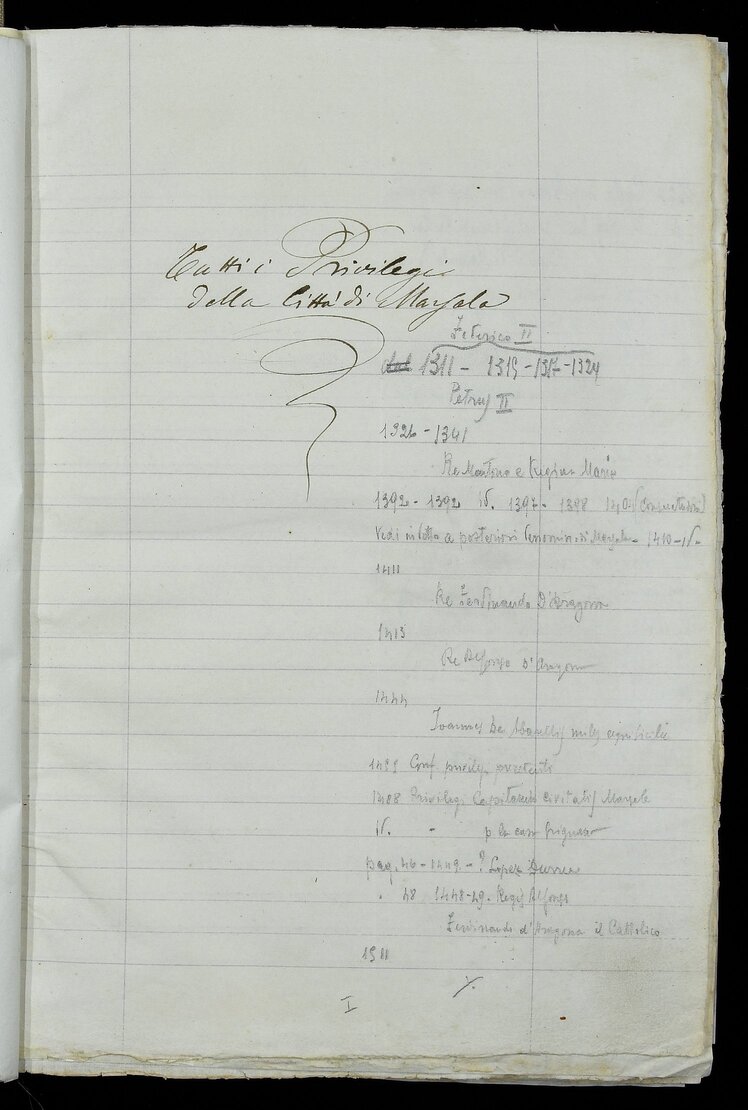 Tutti i Privilegi
della Città di Marsala
Federico II
dal 1311 - 1315 - 1317 - 1324
Petrus II
1326 - 1341
Re Martino e Regina Maria
1392 - 1392 id. 1397 - 1398
Vedi in tutto a posteriori di Marsala - 1410 - id -
1411
Re Ferdinando D'Aragona
1413
Re Alfonso D'Aragona
1444
Joannes De
Conf. privileg.
1488 Privilegi Capitaneis civitatis Marsale
id. - p la casa
pag. 46 - 1449 - ? Lopez Durrea
" 48 1448-49 - Regis Alfonsi
Ferdinando d'Aragona il Cattolico
1511
I